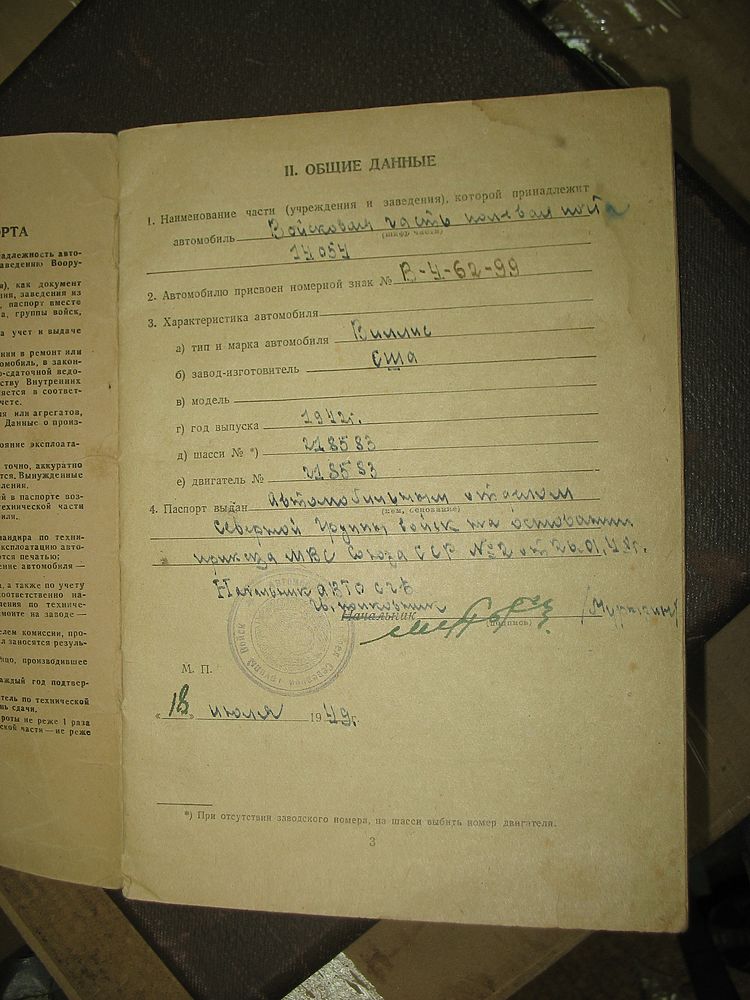 РТА
адлежность авто-
аведению Воору-
я), как документ
ния, заведения из
, паспорт вместе
а, группы войск,
а учет и выдаче
нии в ремонт или
омобиль, в закон-
о-сдаточной ведо-
ству Внутренних
ляется в соответ-
чете.
ия или агрегатов,
Данные о произ-
ояние эксплоата-
точно, аккуратно
тся. Вынужденные
ления.
ей в паспорте воз-
технической части
иля.
мандира по техни-
ксплоатацию авто-
тся печатью;
ение автомобиля —
, а также по учету
оответственно на-
ления по техниче-
монте на заводе —
елем комиссии, про-
л заносятся резуль-
ицо, производившее
аждый год подтвер-
тель по технической
нь сдачи.
роты не реже 1 раза
ской части — не реже
II. ОБЩИЕ ДАННЫЕ
1. Наименование части (учреждения и заведения), которой принадлежит
автомобиль Войсковая часть полевая почта
(шифр части)
14054
2. Автомобилю присвоен номерной знак № В-4-62-99
3. Характеристика автомобиля
а) тип и марка автомобиля Виллис
б) завод-изготовитель США
в) модель
г) год выпуска 1942г.
д) шасси № *) 218583
е) двигатель № 218583
4. Паспорт выдан Автомобильным отделом
(кем, основание)
Северной Группы войск на основании
приказа МВС Союза ССР №2 от
Начальник
полковник
Начальник
(подпись)
М. П.
„18" июля 1949г.
*) При отсутствии заводского номера, на шасси выбить номер двигателя.
3